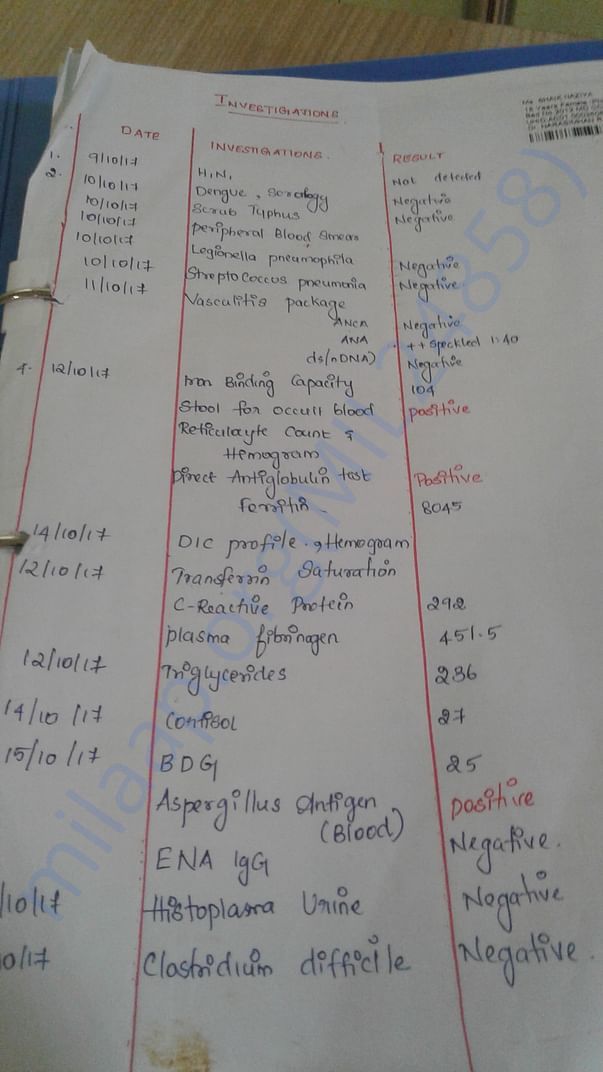 INVESTIGATIONS
DATE INVESTIGATIONS. RESULT
1. 9/10/17 H1N1 Not detected
2. 10/10/17 Dengue, Serology Negative
10/10/17 Scrub Typhus Negative
10/10/17 Peripheral Blood Smears
10/10/17 Legionella pneumophila Negative
10/10/17 Streptococcus pneumonia Negative.
11/10/17 Vasculitis package
ANCA Negative
ANA ++ Speckled 1:40
ds(nDNA) Negative
12/10/17 Iron Binding Capacity 104
Stool for occult blood positive
Reticulayte Count &
Hemogram
Direct Antiglobulin test Positive
Ferritin - 8045
14/10/17 DIC profile, Hemogram
12/10/17 Transferrin Saturation
C-Reactive Protein 292
plasma fibringen 451.5
12/10/17 Triglycerides 236
14/10/17 Cortisol 27
15/10/17 BDG 25
Aspergillus antigen positive
(Blood)
ENA IgG Negative.
/10/17 Histoplasma Urine Negative
0/17 Clostridium difficile Negative.
milaap.org(MIL24858)